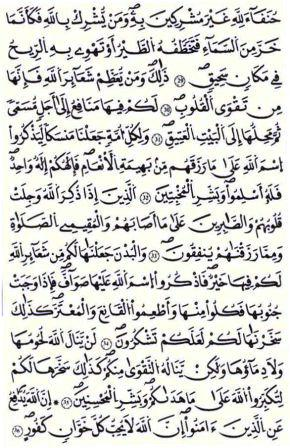 حُنَفَآءَ لِلَّهِ غَيْرَ مُشْرِكِينَ بِهِۦ وَمَن يُشْرِكْ بِٱللَّهِ فَكَأَنَّمَا
خَرَّ مِنَ ٱلسَّمَآءِ فَتَخْطَفُهُ ٱلطَّيْرُ أَوْ تَهْوِى بِهِ ٱلرِّيحُ
فِى مَكَانٍ سَحِيقٍ ٣١ ذَٰلِكَ وَمَن يُعَظِّمْ شَعَٰٓئِرَ ٱللَّهِ فَإِنَّهَا
مِن تَقْوَى ٱلْقُلُوبِ ٣٢ لَكُمْ فِيهَا مَنَٰفِعُ إِلَىٰٓ أَجَلٍ مُّسَمًّى
ثُمَّ مَحِلُّهَآ إِلَى ٱلْبَيْتِ ٱلْعَتِيقِ ٣٣ وَلِكُلِّ أُمَّةٍ جَعَلْنَا مَنسَكًا لِّيَذْكُرُوا۟
ٱسْمَ ٱللَّهِ عَلَىٰ مَا رَزَقَهُم مِّنۢ بَهِيمَةِ ٱلْأَنْعَٰمِ فَإِلَٰهُكُمْ إِلَٰهٌ وَٰحِدٌ
فَلَهُۥٓ أَسْلِمُوا۟ وَبَشِّرِ ٱلْمُخْبِتِينَ ٣٤ ٱلَّذِينَ إِذَا ذُكِرَ ٱللَّهُ وَجِلَتْ
قُلُوبُهُمْ وَٱلصَّٰبِرِينَ عَلَىٰ مَآ أَصَابَهُمْ وَٱلْمُقِيمِى ٱلصَّلَوٰةِ
وَمِمَّا رَزَقْنَٰهُمْ يُنفِقُونَ ٣٥ وَٱلْبُدْنَ جَعَلْنَٰهَا لَكُم مِّن شَعَٰٓئِرِ ٱللَّهِ
لَكُمْ فِيهَا خَيْرٌ فَٱذْكُرُوا۟ ٱسْمَ ٱللَّهِ عَلَيْهَا صَوَآفَّ فَإِذَا وَجَبَتْ
جُنُوبُهَا فَكُلُوا۟ مِنْهَا وَأَطْعِمُوا۟ ٱلْقَانِعَ وَٱلْمُعْتَرَّ كَذَٰلِكَ
سَخَّرْنَٰهَا لَكُمْ لَعَلَّكُمْ تَشْكُرُونَ ٣٦ لَن يَنَالَ ٱللَّهَ لُحُومُهَا
وَلَا دِمَآؤُهَا وَلَٰكِن يَنَالُهُ ٱلتَّقْوَىٰ مِنكُمْ كَذَٰلِكَ سَخَّرَهَا لَكُمْ
لِتُكَبِّرُوا۟ ٱللَّهَ عَلَىٰ مَا هَدَىٰكُمْ وَبَشِّرِ ٱلْمُحْسِنِينَ ٣٧ ۞ إِنَّ ٱللَّهَ يُدَٰفِعُ
عَنِ ٱلَّذِينَ ءَامَنُوٓا۟ إِنَّ ٱللَّهَ لَا يُحِبُّ كُلَّ خَوَّانٍ كَفُورٍ ٣٨